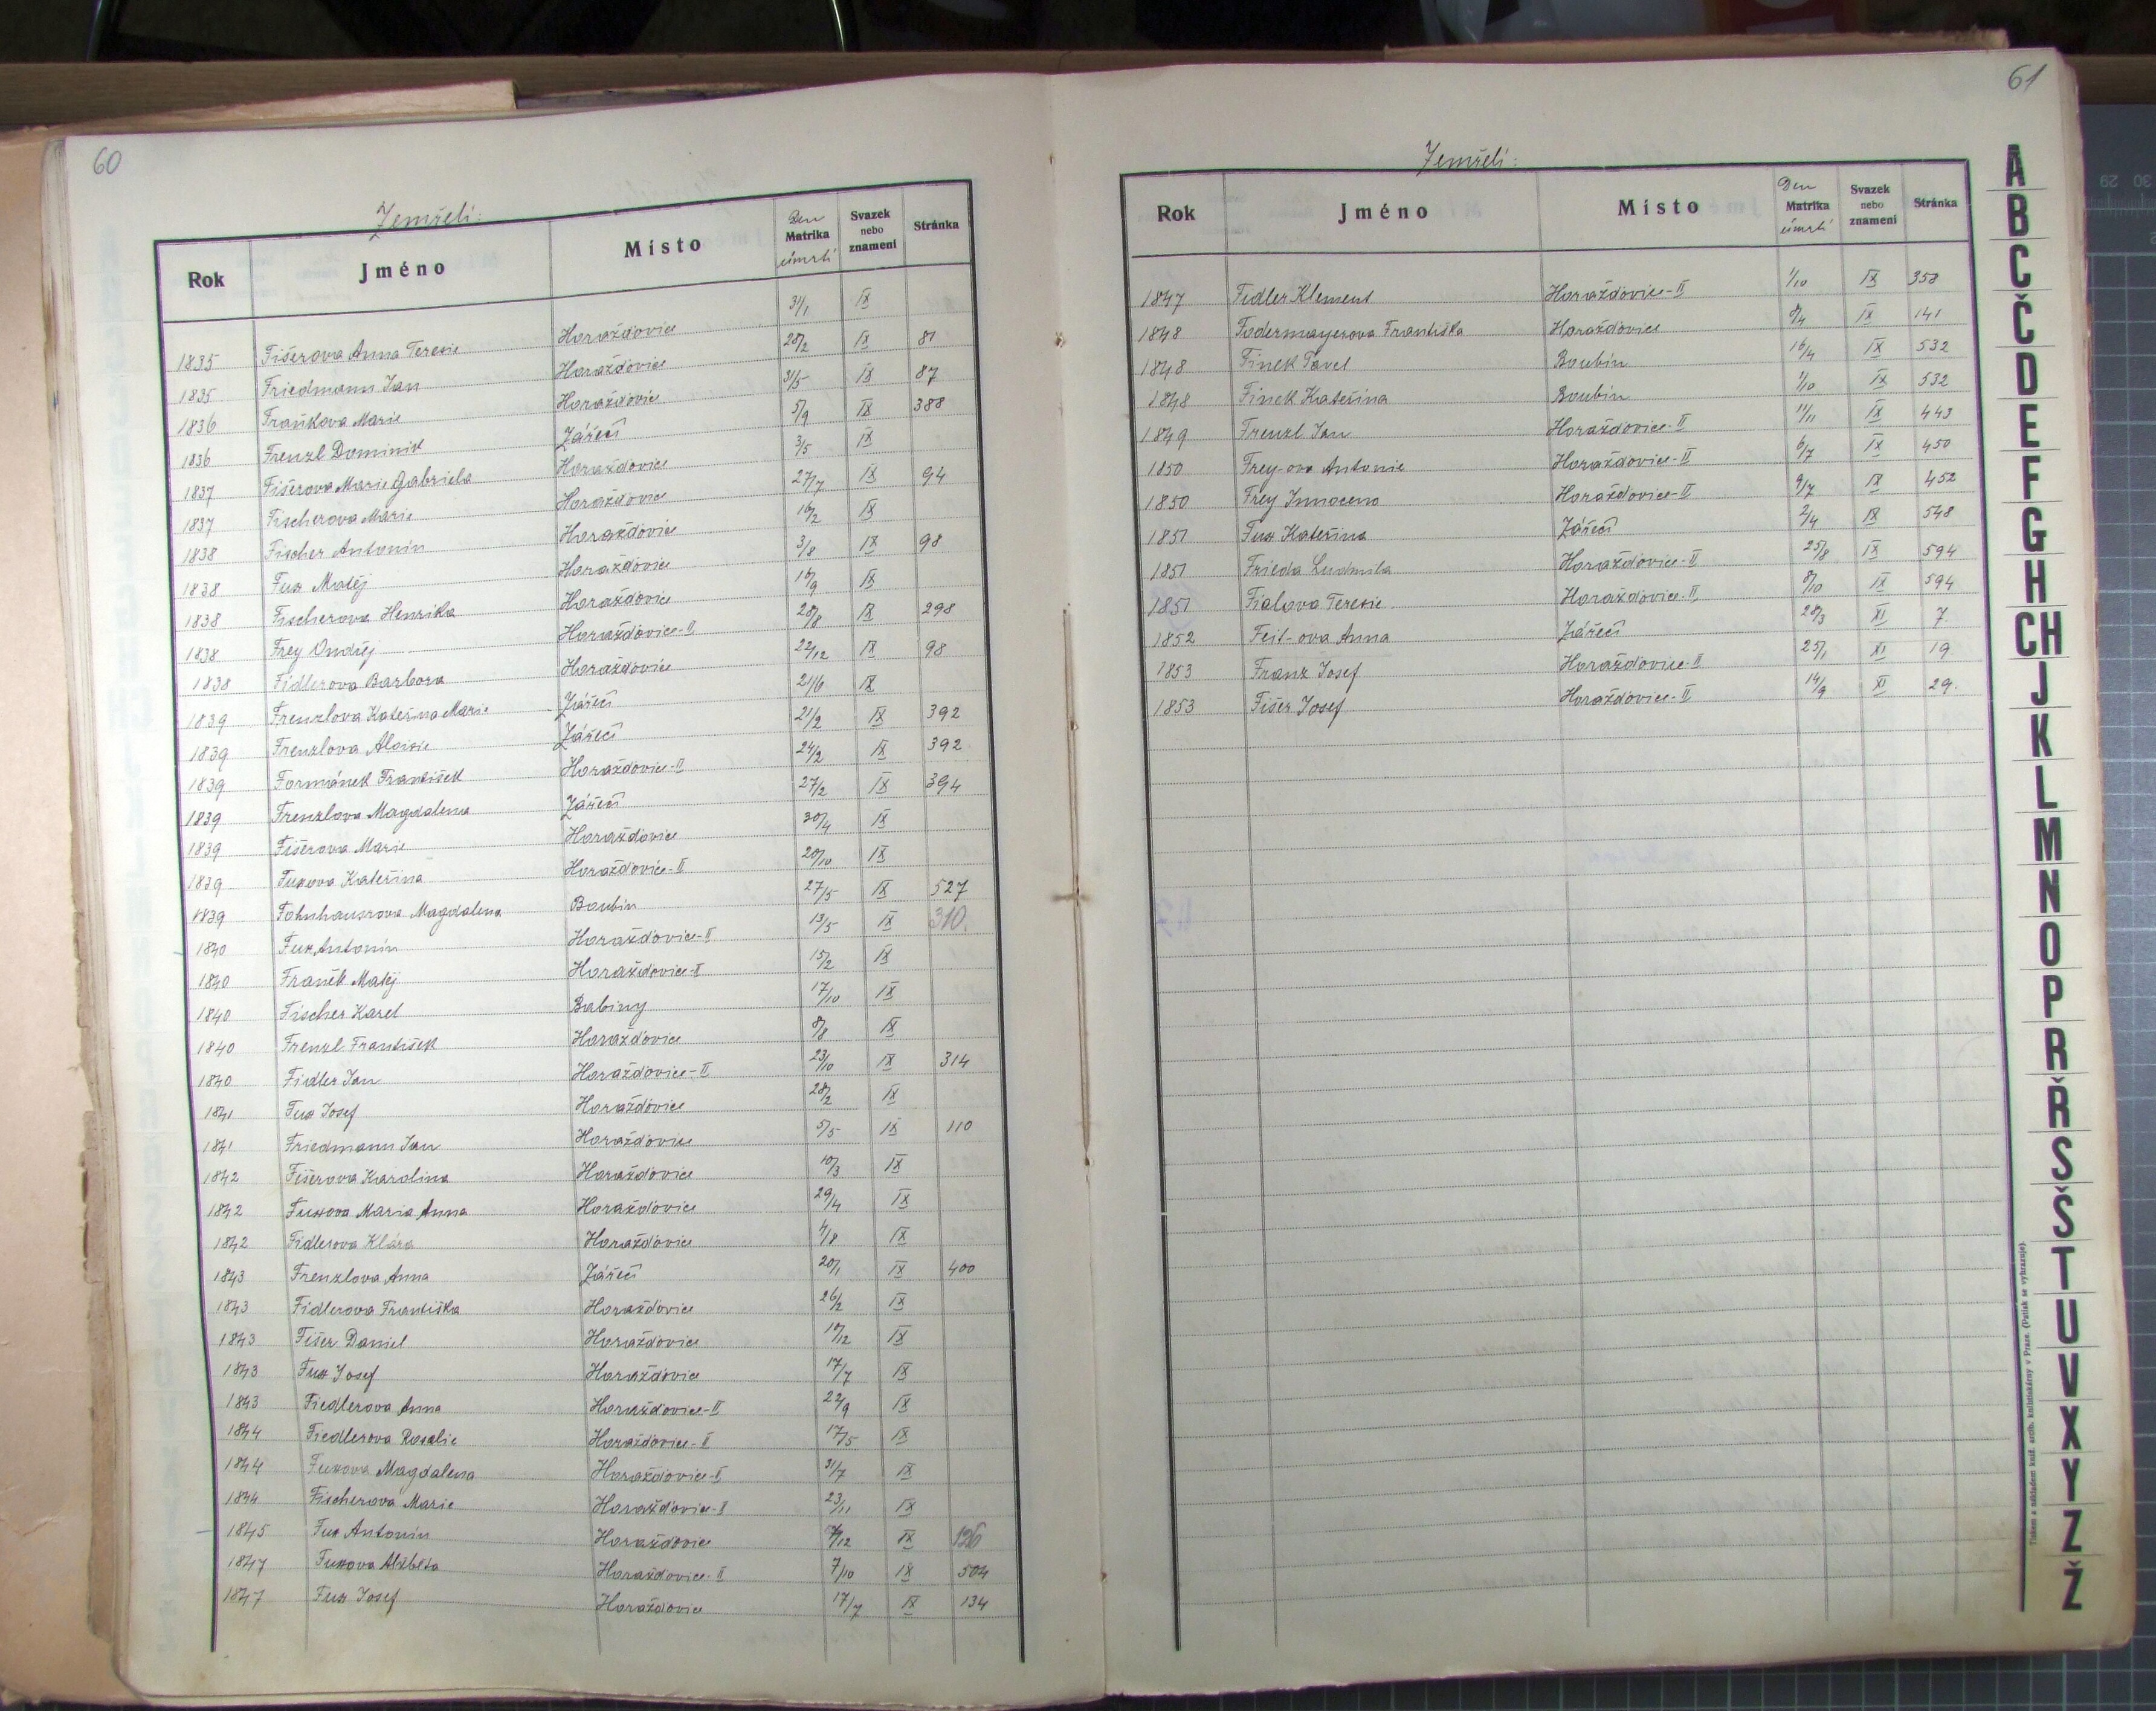 60
Zemřelí:
Rok Jméno Místo Den Matrika úmrtí Svazek nebo znamení Stránka
1835 Fišerova Anna Teresie Horažďovice 31/1 IX
1835 Friedmann Jan Horažďovice 28/2 IX 81
1836 Fraňkova Marie Horažďovice 31/5 IX 87
1836 Frenzl Dominik Zářečí 5/9 IX 388
1837 Fišerova Marie Gabriela Horažďovice 3/5 IX
1837 Fischerova Marie Horažďovice 27/7 IX 94
1838 Fischer Antonín Horažďovice 16/2 IX
1838 Fux Matěj Horažďovice 3/8 IX 98
1838 Fischerova Henrika Horažďovice 16/9 IX
1838 Frey Ondřej Horažďovice-II 28/8 IX 298
1838 Fidlerova Barbora Horažďovice 22/12 IX 98
1839 Frenzlova Kateřina Marie Zářečí 21/6 IX
1839 Frenzlova Aloisie Zářečí 21/2 IX 392
1839 Formánek František Horažďovice-II 24/2 IX 392
1839 Frenzlova Magdalena Zářečí 27/2 IX 394
1839 Fišerova Marie Horažďovice 30/4 IX
1839 Fuxova Kateřina Horažďovice-II 20/10 IX
1839 Fohnhausrova Magdalena Boubín 27/5 IX 527
1840 Fux Antonín Horažďovice-II 13/5 IX 310.
1840 Franěk Matěj Horažďovice-II 15/2 IX
1840 Fischer Karel Babiny 17/10 IX
1840 Frenzl František Horažďovice 8/8 IX
1840 Fidler Jan Horažďovice-II 23/10 IX 314
1841 Fux Josef Horažďovice 28/2 IX
1841 Friedmann Jan Horažďovice 5/5 IX 110
1842 Fišerova Karolina Horažďovice 10/3 IX
1842 Fuxova Maria Anna Horažďovice 29/4 IX
1842 Fidlerova Klára Horažďovice 4/8 IX
1843 Frenzlova Anna Zářečí 20/1 IX 400
1843 Fidlerova Františka Horažďovice 26/2 IX
1843 Fišer Daniel Horažďovice 10/12 IX
1843 Fux Josef Horažďovice 17/7 IX
1843 Fiedlerova Anna Horažďovice-II 22/9 IX
1844 Fiedlerova Rosalie Horažďovice-II 17/5 IX
1844 Fuxova Magdalena Horažďovice-II 31/7 IX
1844 Fischerova Marie Horažďovice-II 23/11 IX
1845 Fux Antonín Horažďovice 7/12 IX 126
1847 Fuxova Alžběta Horažďovice-II 7/10 IX 504
1847 Fux Josef Horažďovice 17/7 IX 134
61
Zemřelí:
Rok Jméno Místo Den Matrika úmrtí Svazek nebo znamení Stránka
1847 Fidler Klement Horažďovice-II 1/10 IX 358
1848 Fodermayerova Františka Horažďovice 8/4 IX 141
1848 Finek Pavel Boubín 16/4 IX 532
1848 Finek Kateřina Boubín 1/10 IX 532
1849 Frenzl Jan Horažďovice-II 11/11 IX 443
1850 Frey-ova Antonie Horažďovice-II 6/7 IX 450
1850 Frey Innocenc Horažďovice-II 9/7 IX 452
1851 Fux Kateřina Zářečí 2/4 IX 548
1851 Frieda Ludmila Horažďovice-II 25/8 IX 594
1851 Fialova Teresie Horažďovice-II, 8/10 IX 594
1852 Feit-ova Anna Zářečí 28/3 XI 7.
1853 Franz Josef Horažďovice-II 25/1 XI 19.
1853 Fišer Josef Horažďovice-II 14/9 XI 29.
A
B
C
Č
D
E
F
G
H
CH
J
K
L
M
N
O
P
R
Ř
S
Š
T
U
V
X
Y
Z
Ž
Tiskem a nákladem kníž. arcib. knihtiskárny v Praze. (Patisk se vyhrazuje).
29
30